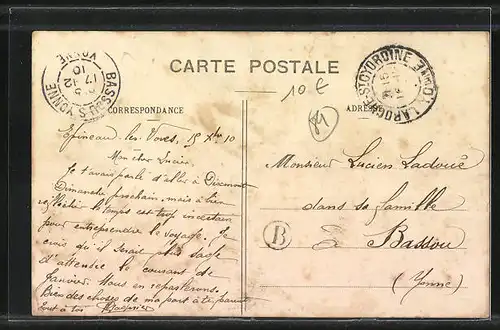 CARTE POSTALE
10 €
89
CORRESPONDANCE
ADRESSE
BASSOU YONNE
17
12
10
LAROCHE-ST-CYDROINE YONNE
Epineau les Voves, 15 Xbre 10
Mon cher Lucien
Je t'avais parlé d'aller à Dixmont
Dimanche prochain, mais à bien
réfléchir le temps est trop incertain
pour entreprendre le voyage. Je
crois qu'il serait plus sage
d'attendre le courant de
Janvier. Nous en reparlerons.
Bien des choses de ma part à tes parents
Tout à toi
Monsieur Lucien Ladoué
dans sa famille
B
à Bassou
(Yonne)